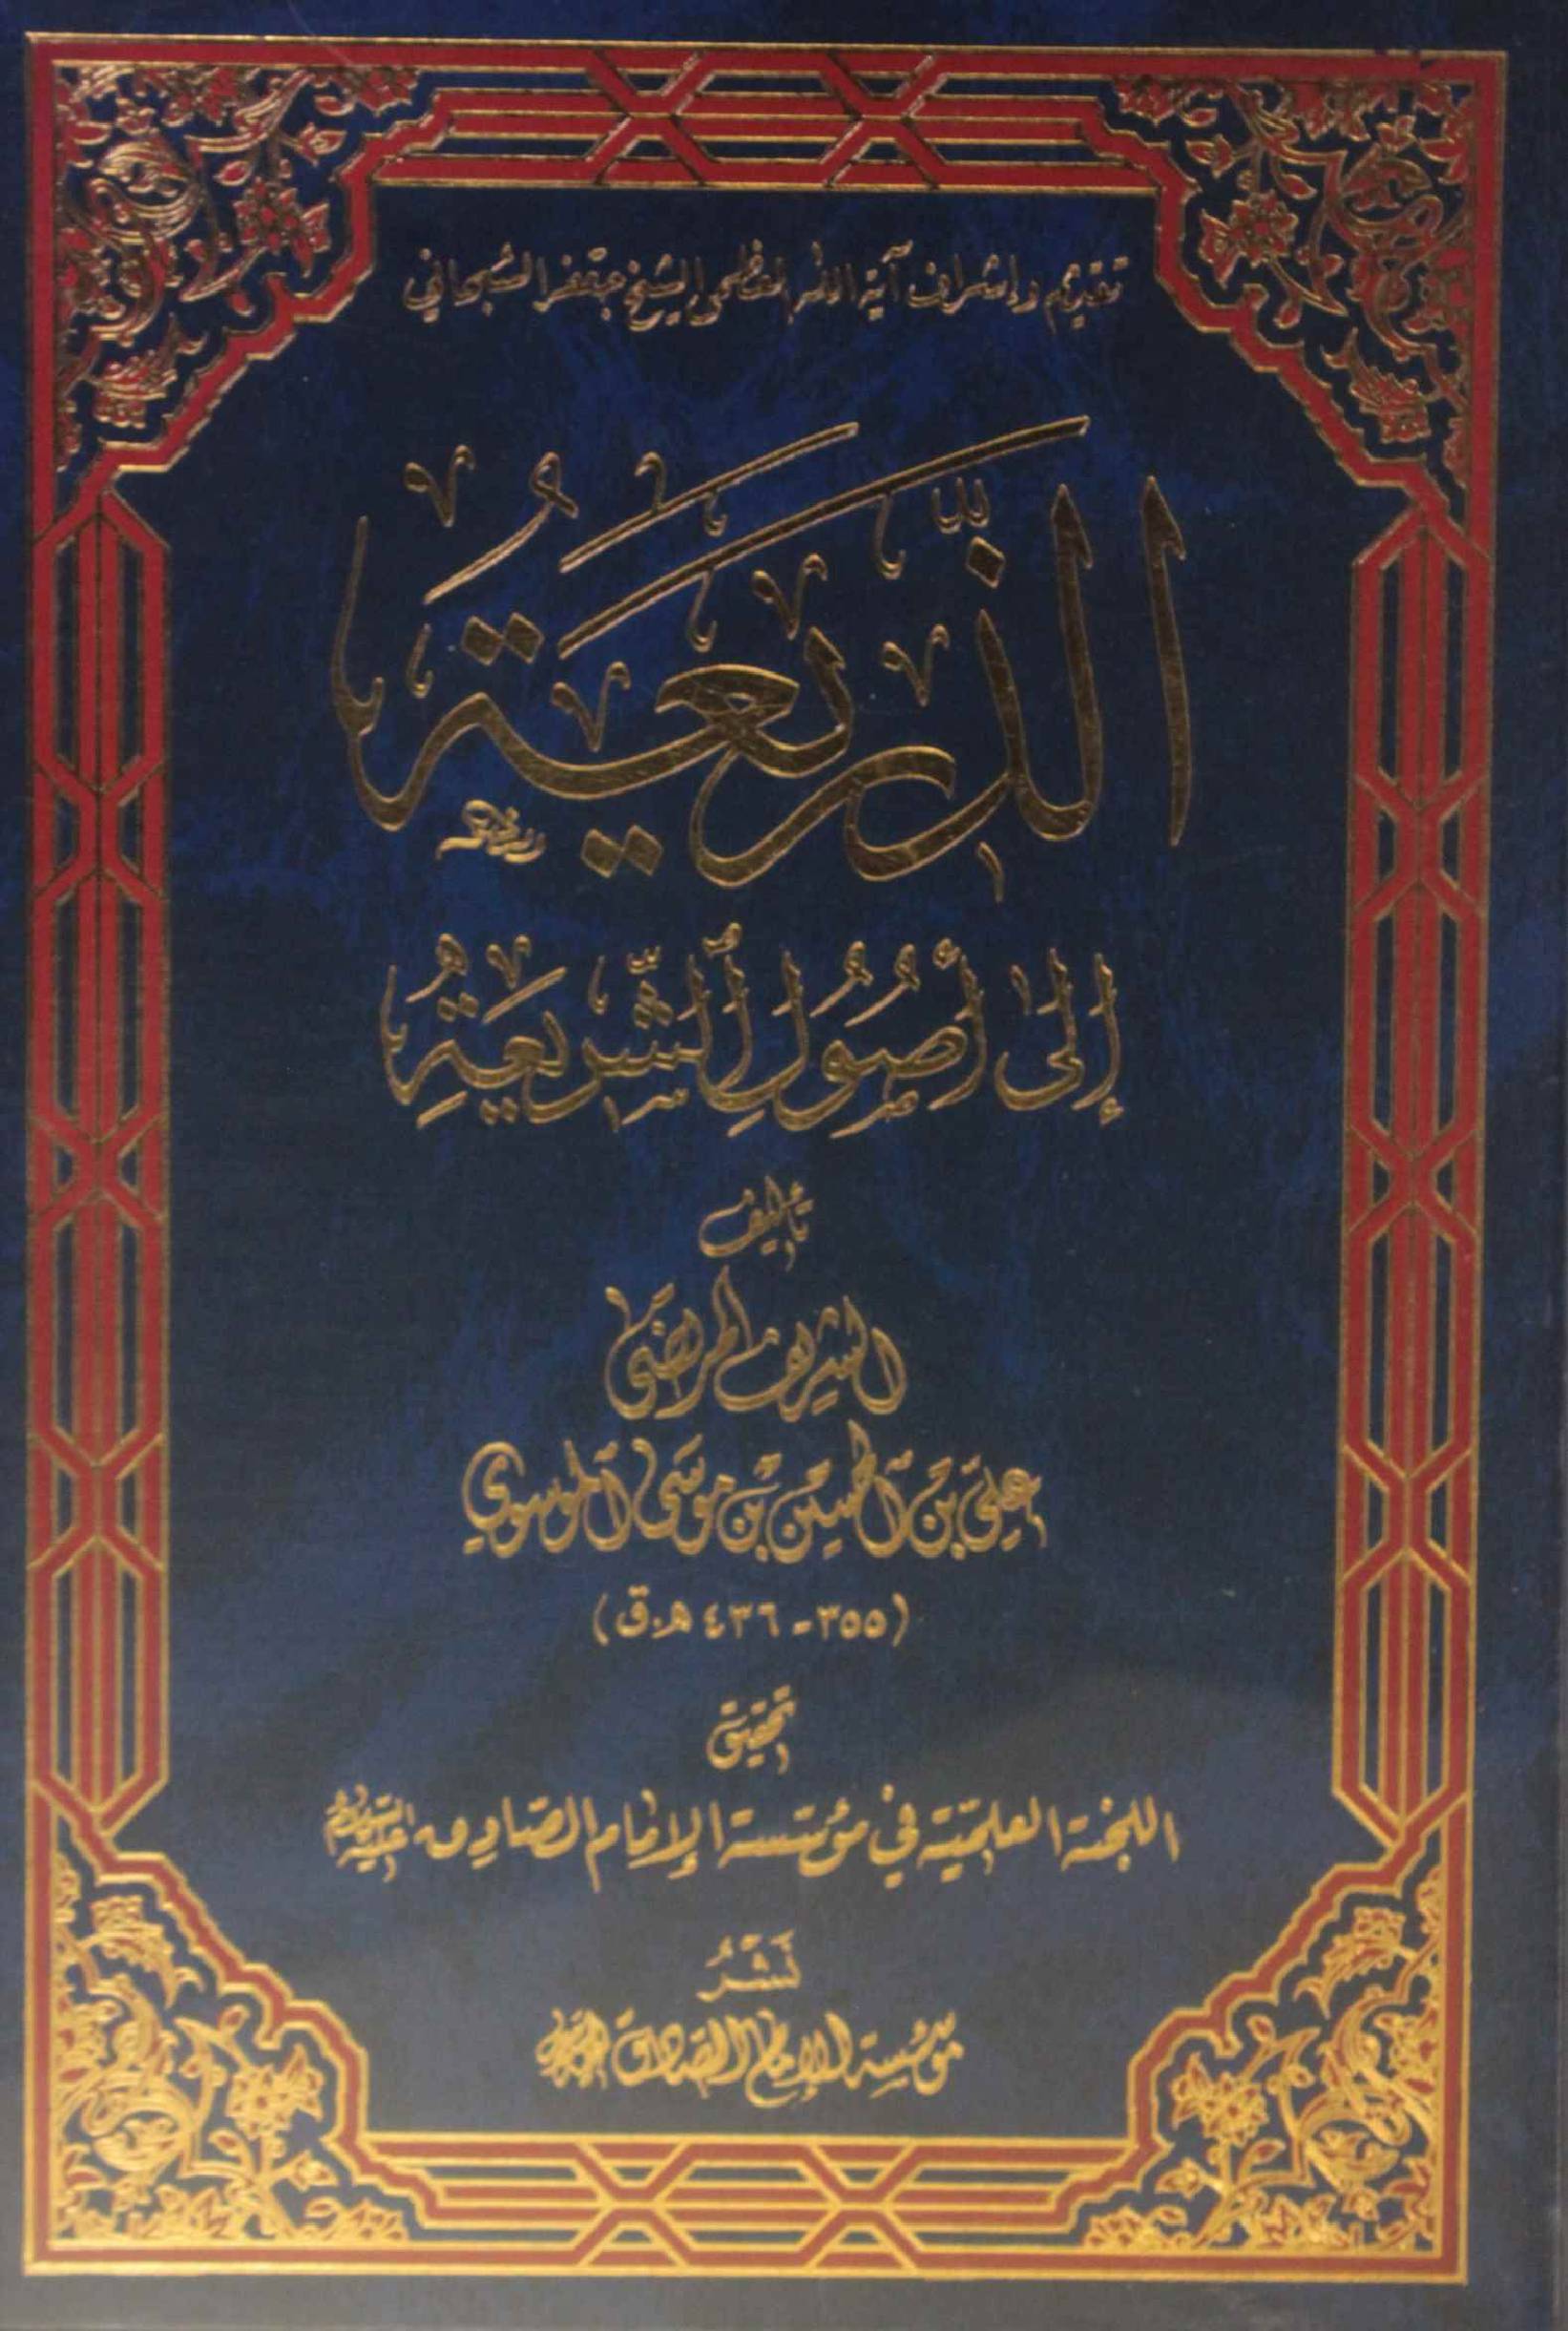 تقديم وإشراف آية الله العظمى الشيخ جعفر السبحاني
الذَّرِيعَةُ
إلى أُصُولِ الشَّرِيعَةِ
تأليف
الشريف المرتضى
علي بن الحسين بن موسى الموسوي
(٣٥٥ - ٤٣٦ هـ.ق)
تحقيق
اللجنة العلمية في مؤسسة الإمام الصادق عليه السلام
نَشْرُ
مؤسسة الإمام الصادق